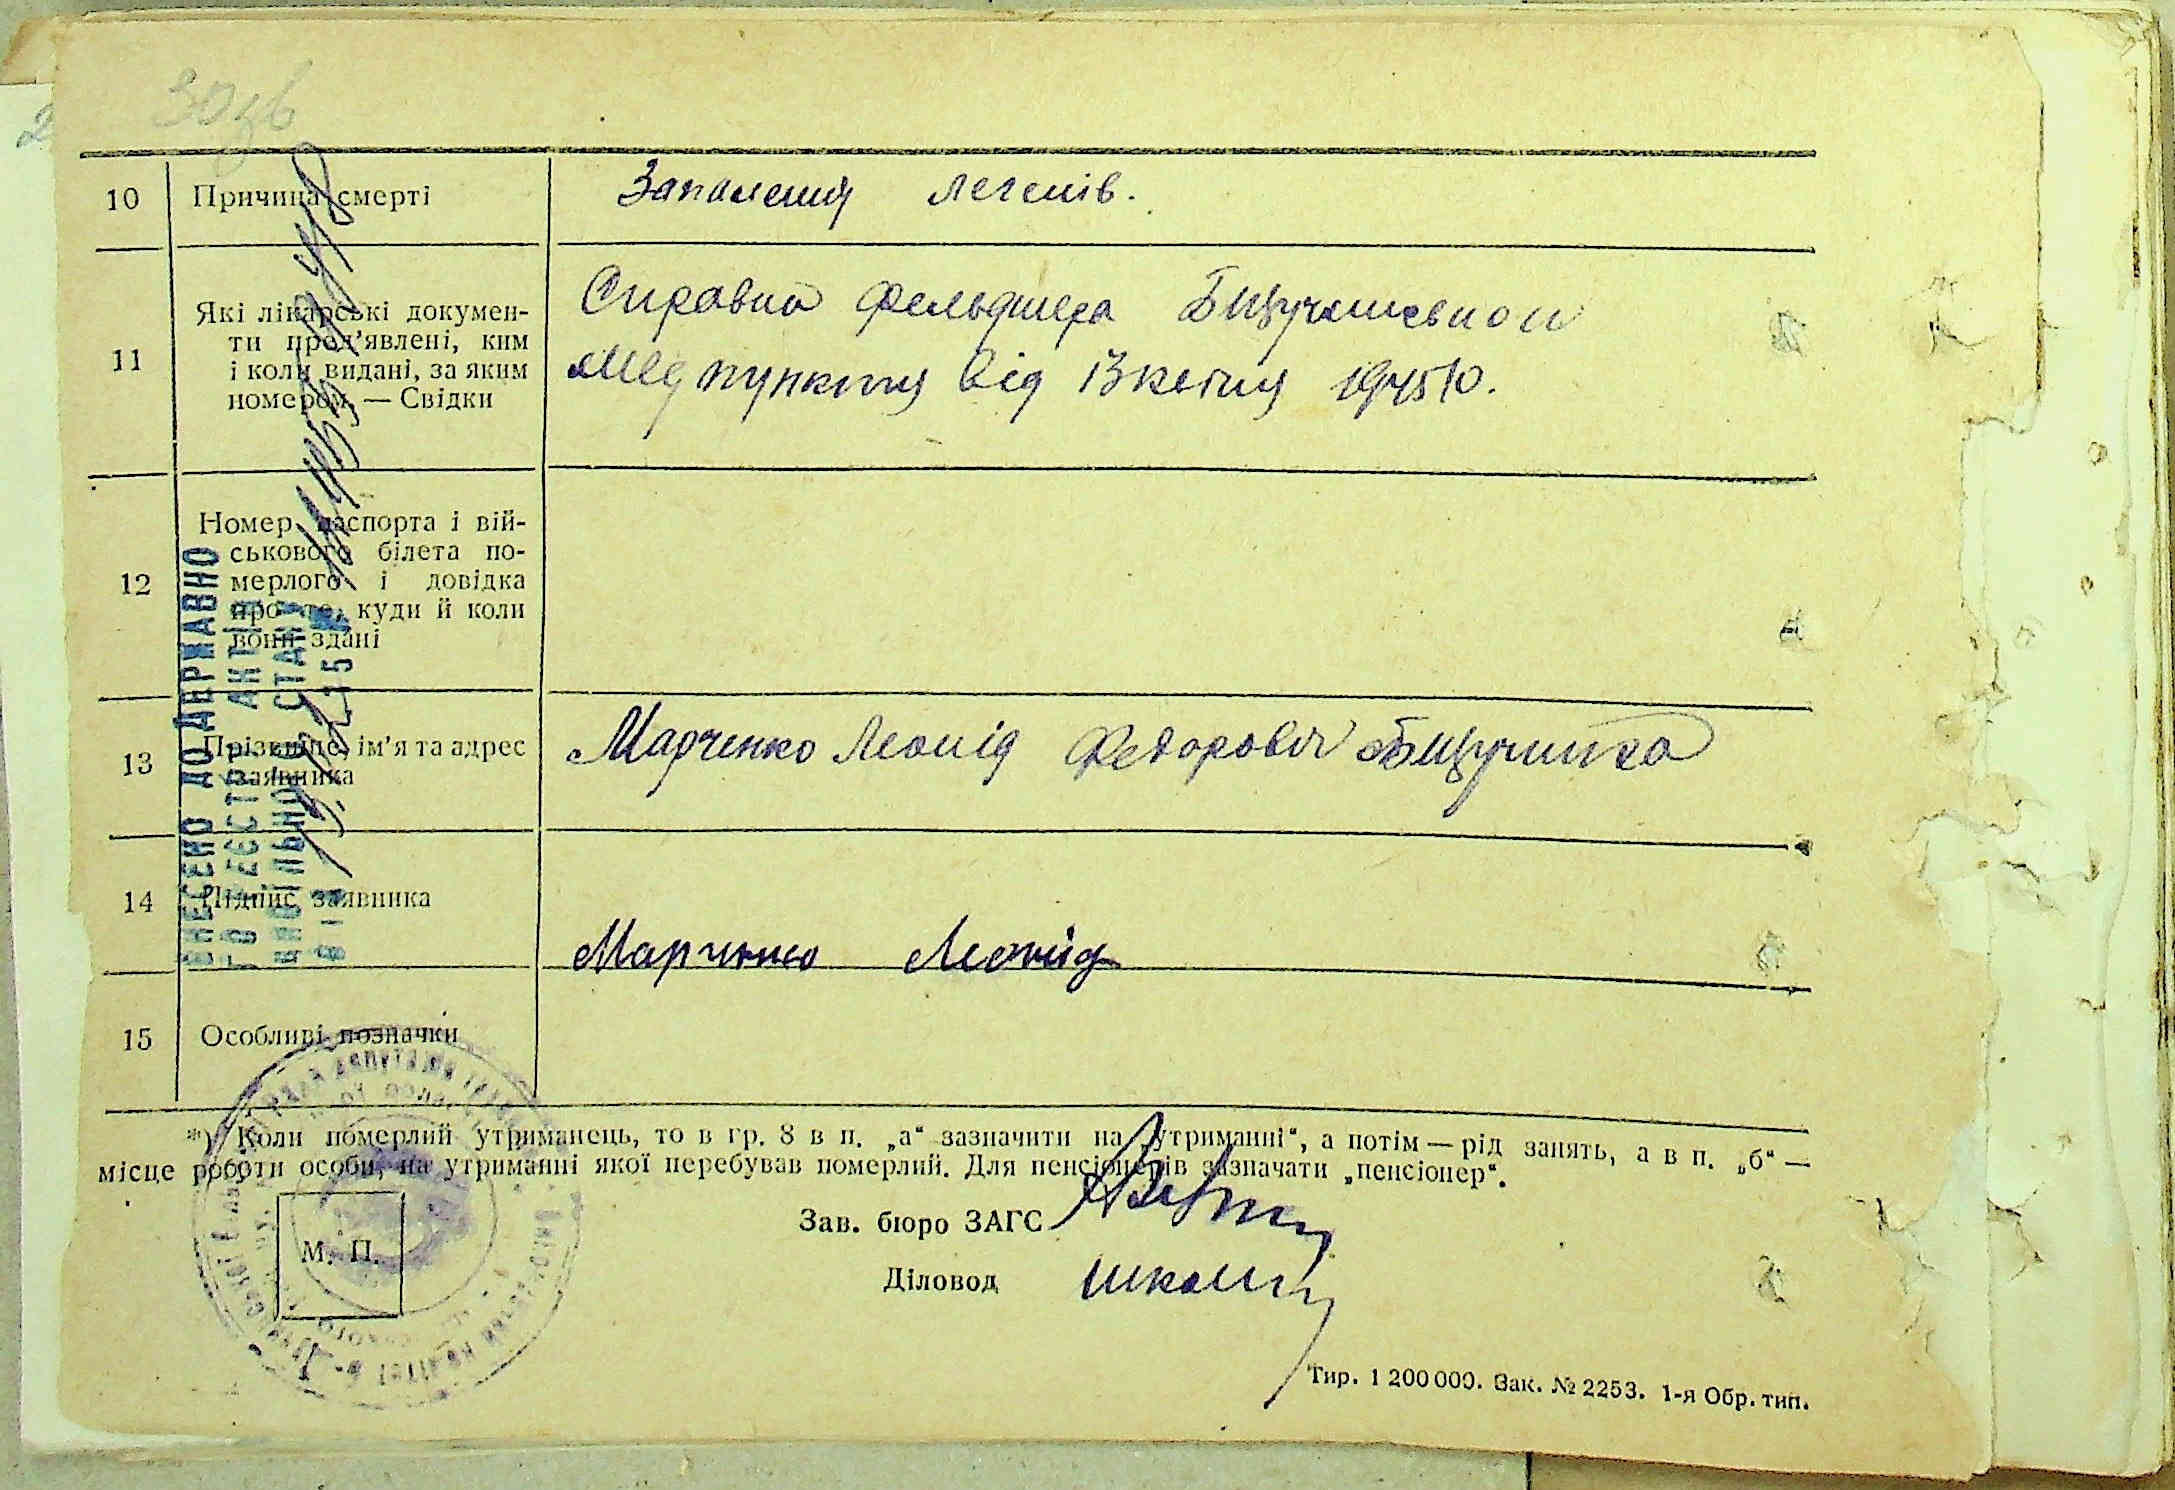 30зв
10 Причина смерті Запалення легенів.
11 Які лікарські докумен-
ти пред'явлені, ким
і коли видані, за яким
номером. — Свідки
Справка фельдшера
Мед пункту від 13 квітня 1945 ю.
12 Номер паспорта і вій-
ськового білета по-
мерлого і довідка
про те, куди й коли
вони здані
13 Прізвище, ім'я та адрес
заявника
Марченко Леонід Федорович
14 Підпис заявника
Марченко Леонід
15 Особливі позначки
ВНЕСЕНО ДО ДЕРЖАВНО
ГО РЕЄСТРУ АКТІВ
ЦИВІЛЬНОГО СТАНУ
*) Коли померлий утриманець, то в гр. 8 в п. „а“ зазначити на „утриманні“, а потім — рід занять, а в п. „б“ —
місце роботи особи, на утриманні якої перебував померлий. Для пенсіонерів зазначати „пенсіонер“.
М. П.
Зав. бюро ЗАГС
Діловод
Тир. 1 200 000. Зак. № 2253. 1-я Обр. тип.